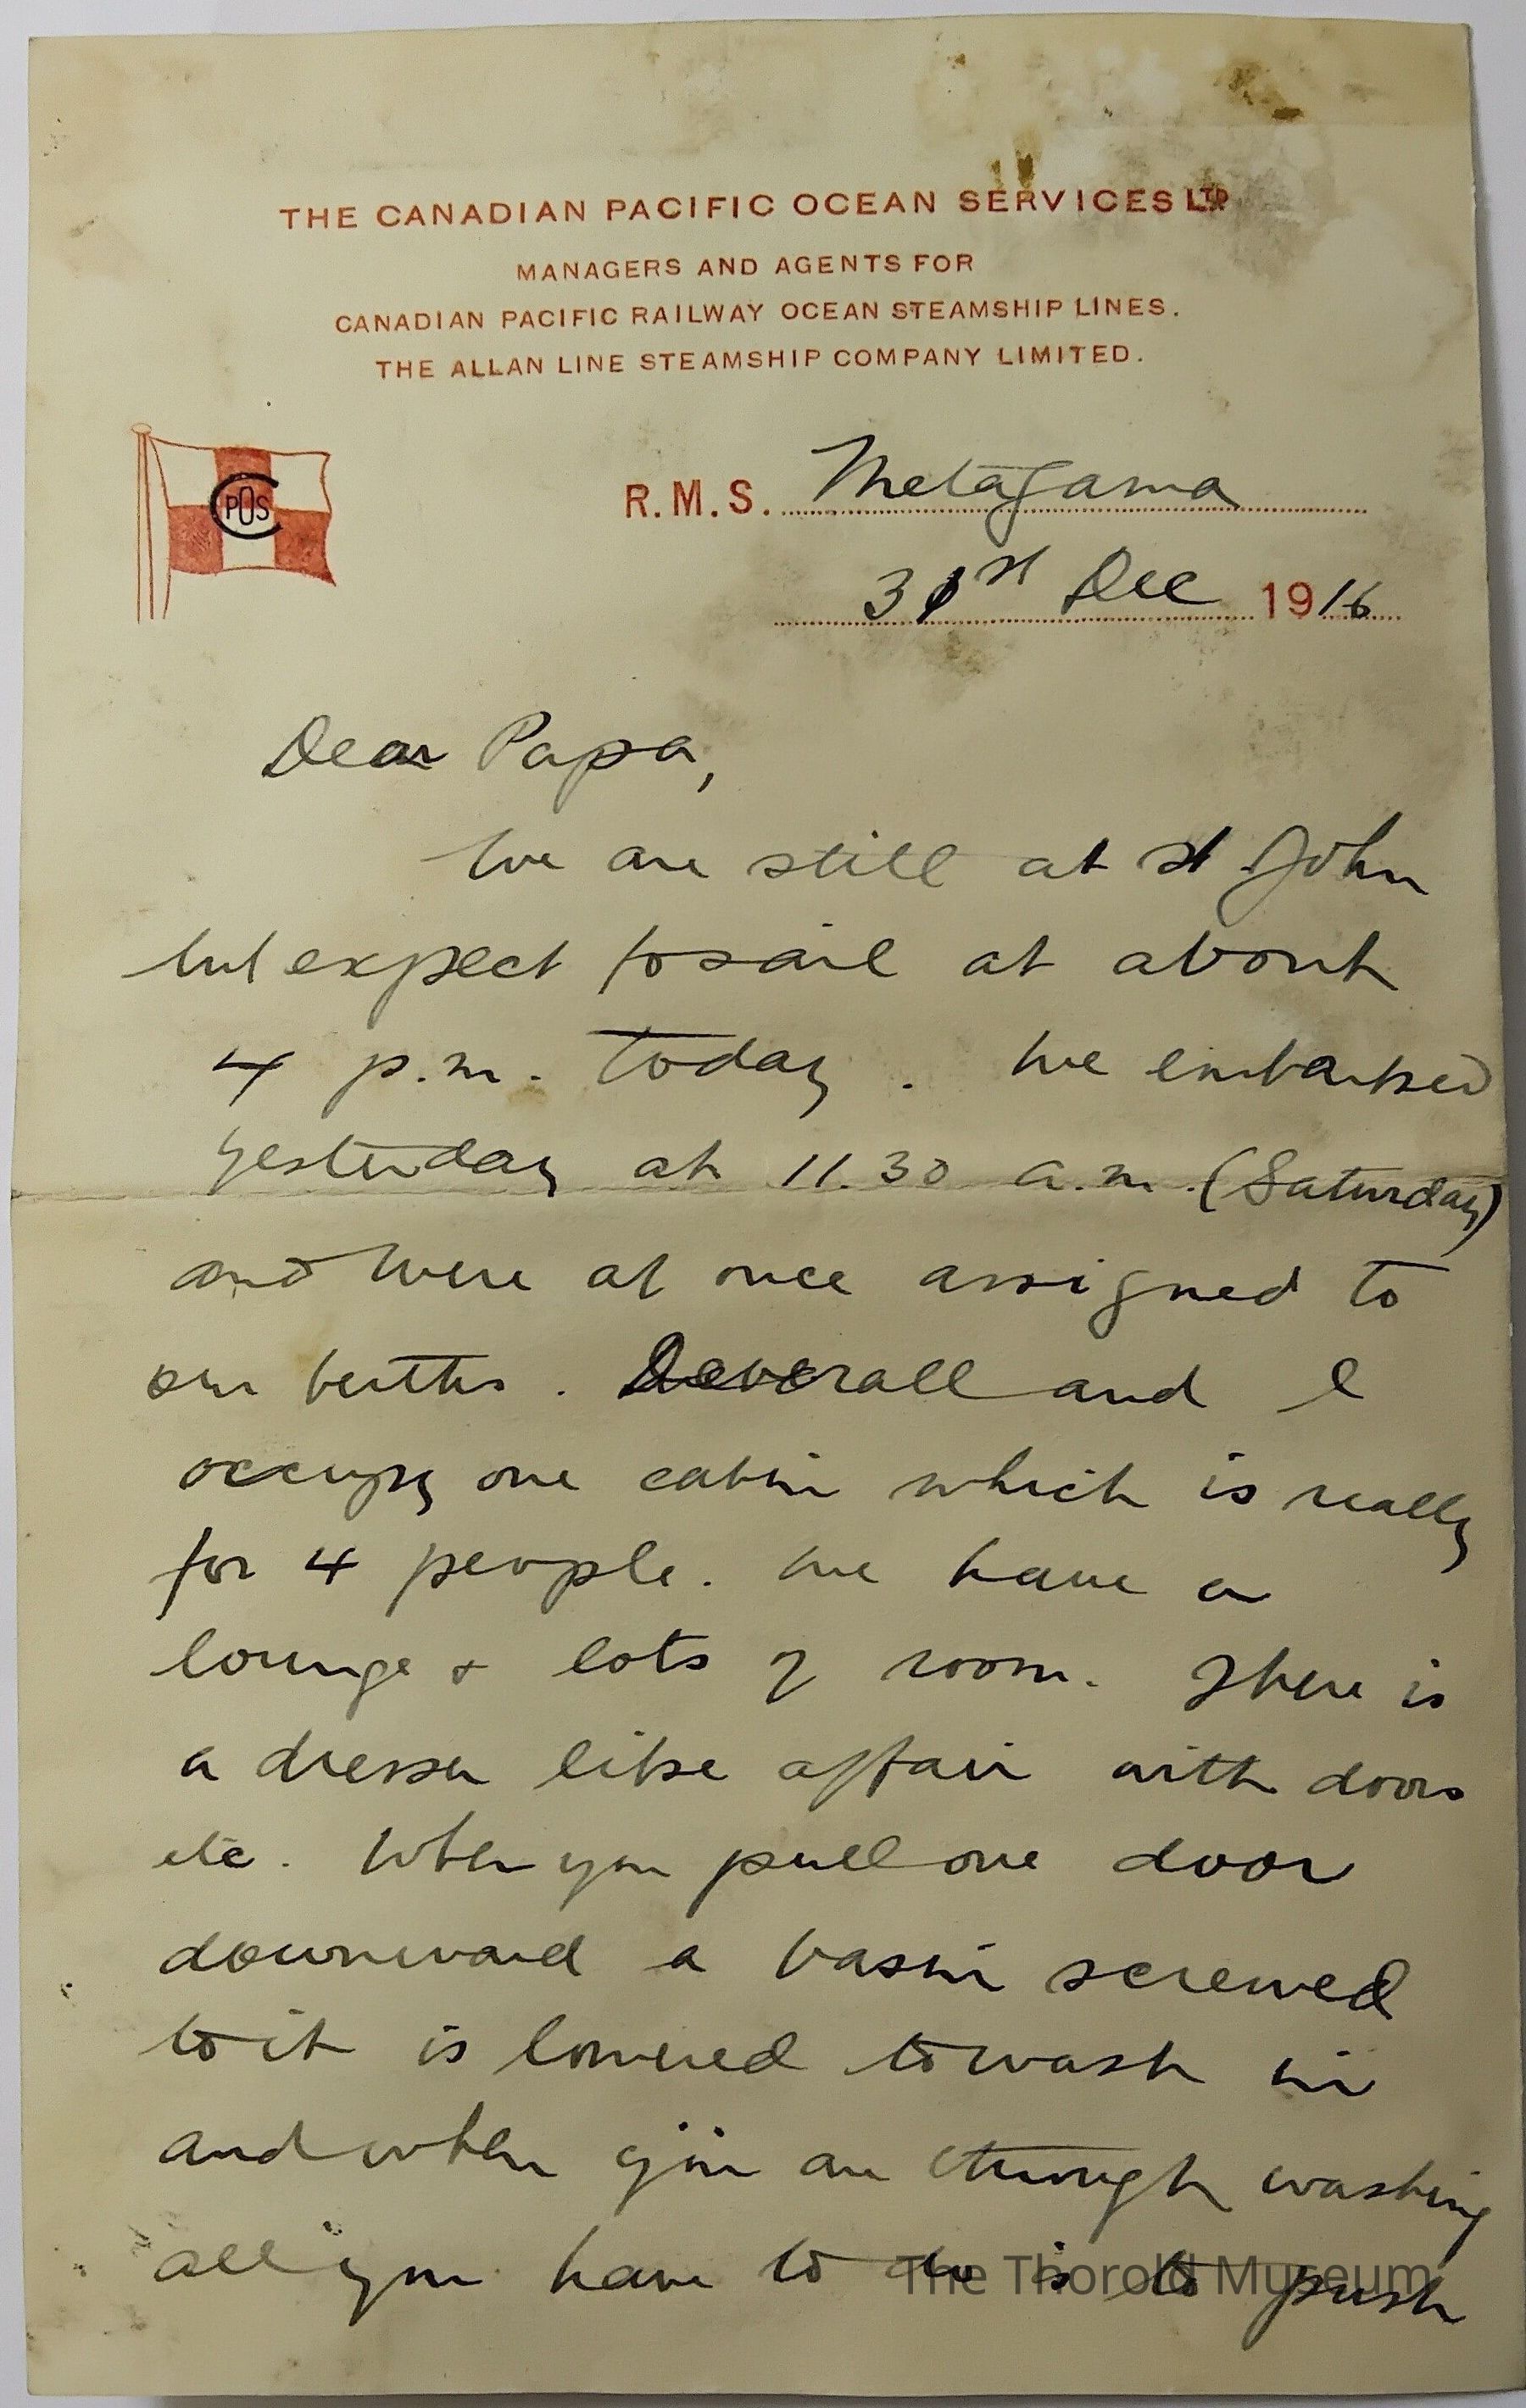 THE CANADIAN PACIFIC OCEAN SERVICES LTD
MANAGERS AND AGENTS FOR
CANADIAN PACIFIC RAILWAY OCEAN STEAMSHIP LINES.
THE ALLAN LINE STEAMSHIP COMPANY LIMITED.
CPOS
R.M.S. Metagama
31st Dec 1916
Dear Papa,
We are still at St John
but expect to sail at about
4 p.m. today. We embarked
yesterday at 11.30 a.m. (Saturday)
and were at once assigned to
our berths. Deverall and I
occupy one cabin which is really
for 4 people. We have a
lounge & lots of room. There is
a dresser like affair with doors
etc. When you pull one door
downward a basin screwed
to it is lowered to wash in
and when you are through washing
all you have to do is to push
The Thorold Museum